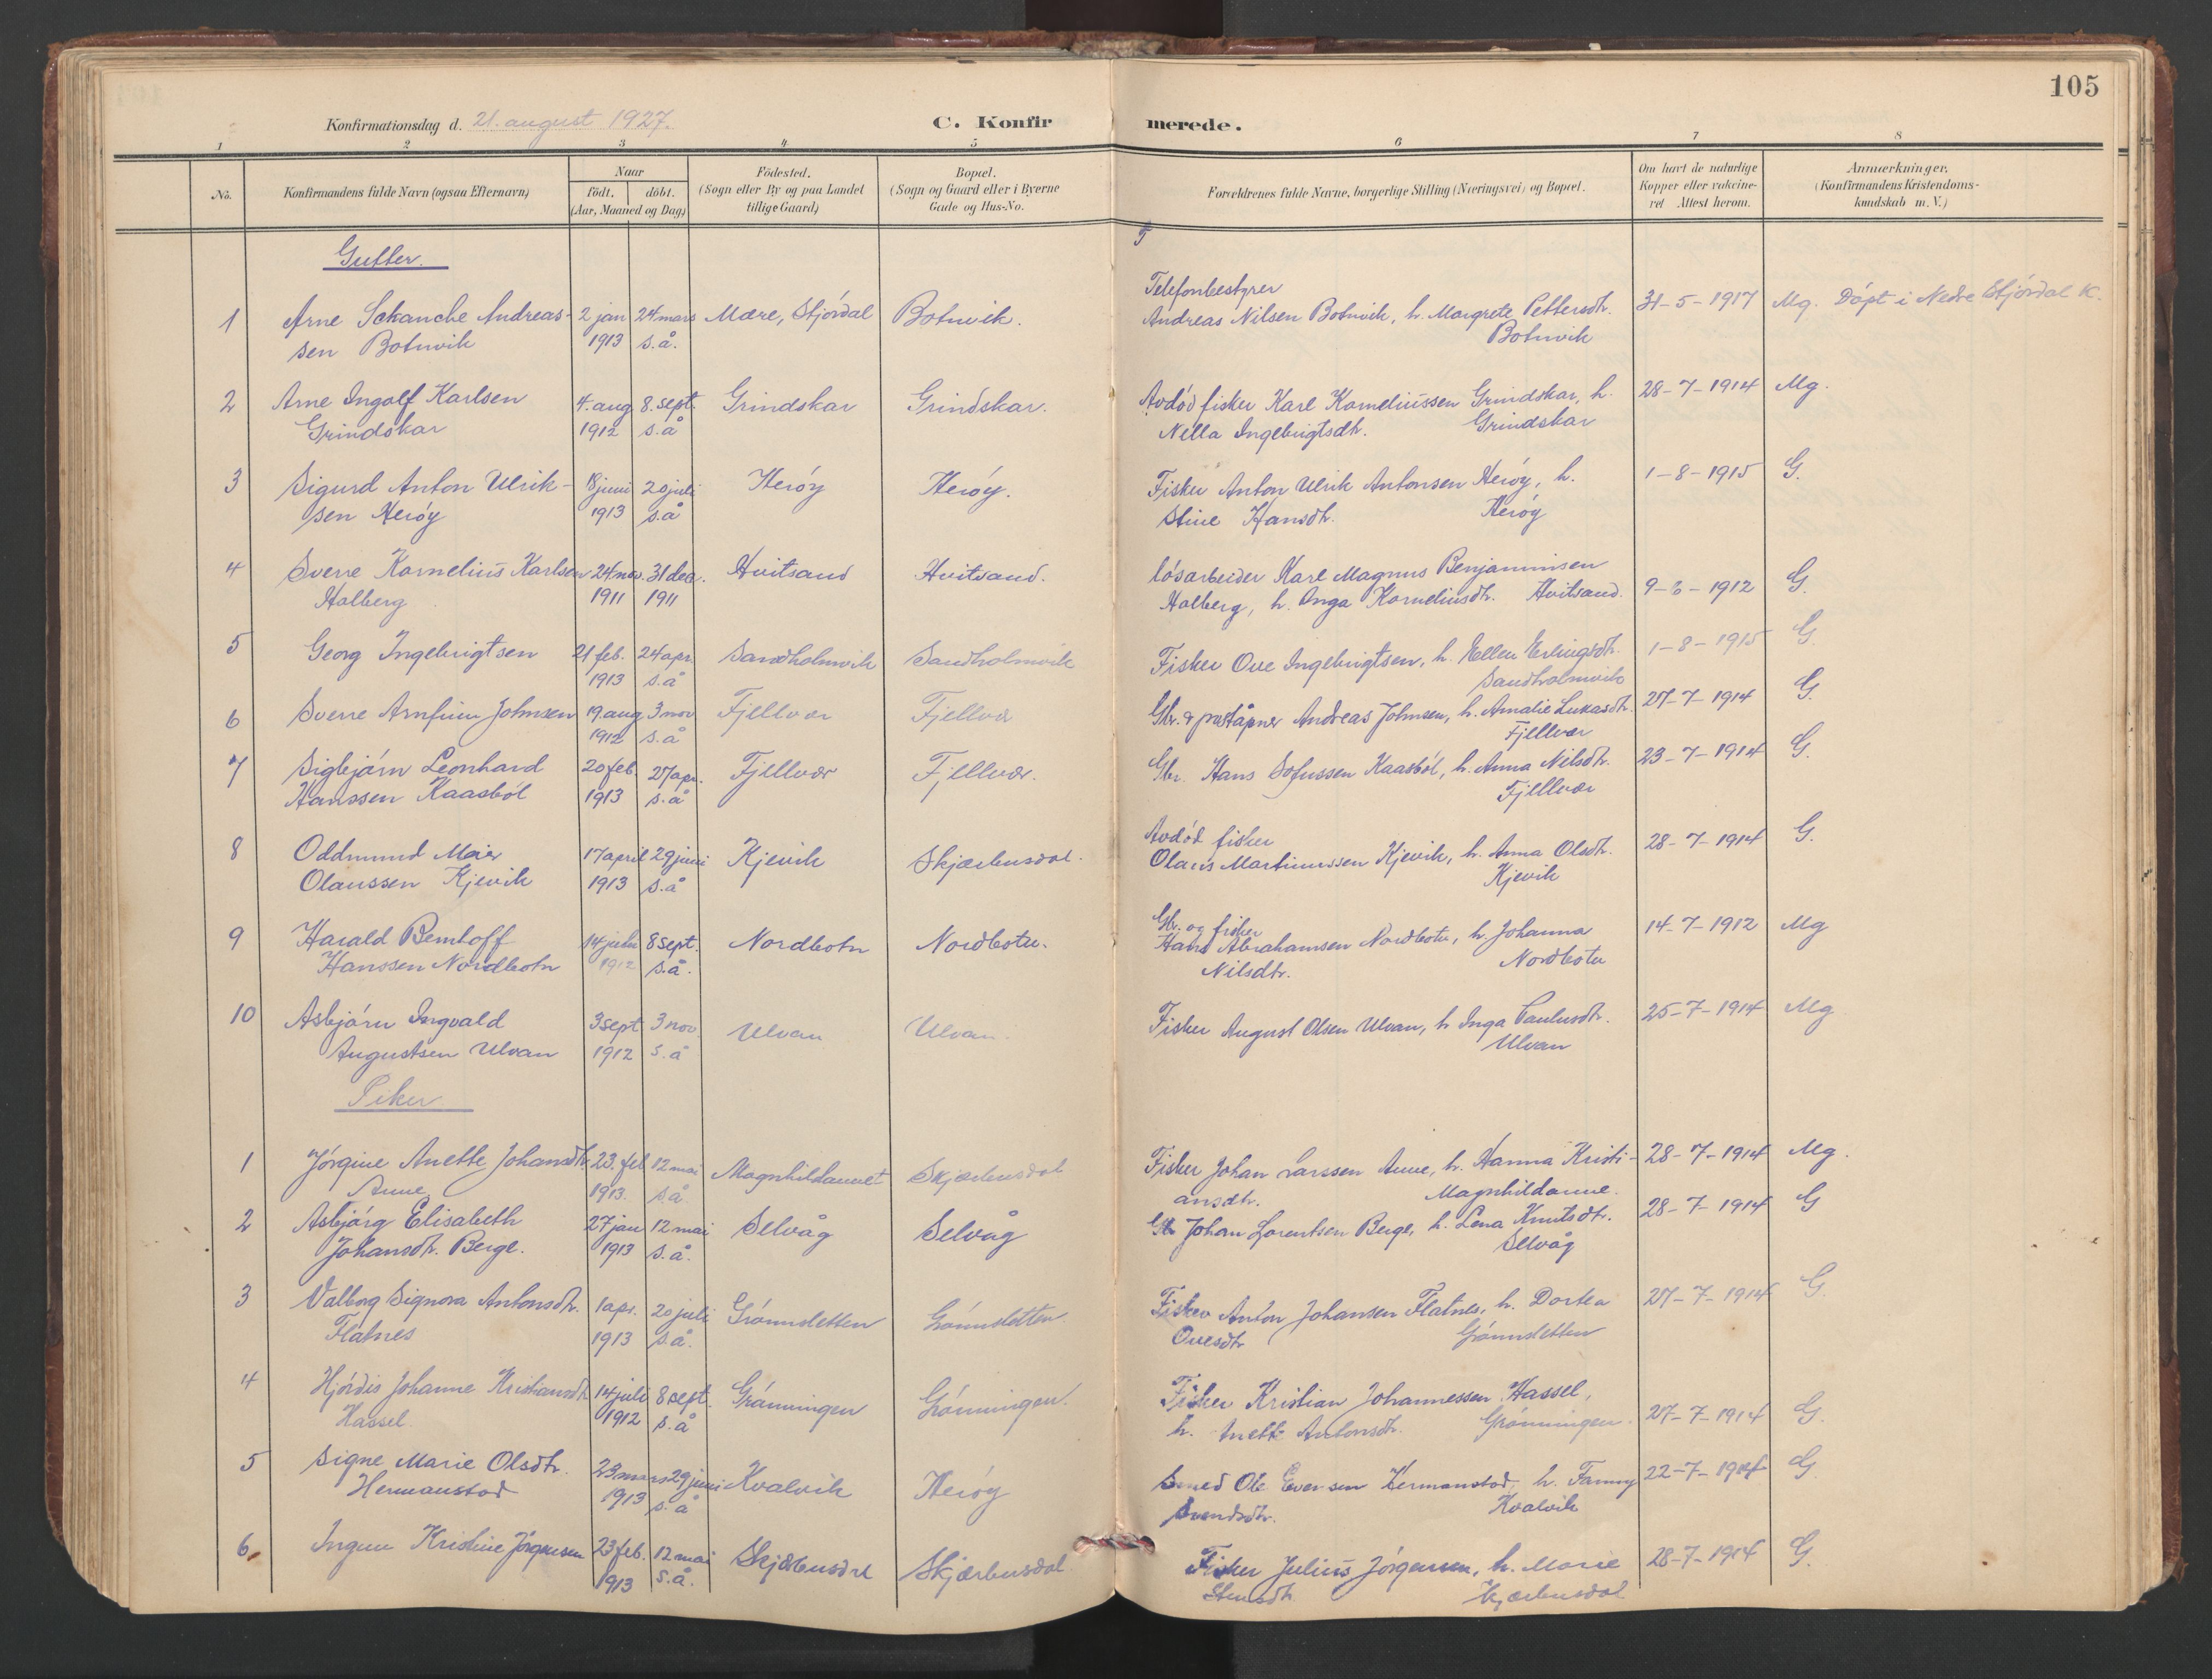 105
Konfirmationsdag d. 21. august 1927.
C. Konfirmerede.
1 2 3 4 5 6 7 8
No.
Konfirmandens fulde Navn (ogsaa Efternavn)
Naar
födt. döbt.
(Aar, Maaned og Dag)
Födested.
(Sogn eller By og paa Landet
tillige Gaard)
Bopæl.
(Sogn og Gaard eller i Byerne
Gade og Hus-No.
Forældrenes fulde Navne, borgerlige Stilling (Næringsvei) og Bopæl.
Om havt de naturlige
Kopper eller vakcine-
ret Attest herom.
Anmærkninger.
(Konfirmandens Kristendoms-
kundskab m. V.)
Gutter.
Telefonbestyrer
1 Arne Schanche Andreas- 2 jan 24 mars Mære, Stjórdal Botnvik. Andreas Nilsen Botnvik, h. Margrete Pettersdtr. 31-5-1917 Mg. Dópt i Nedre Stjórdal K.
sen Botnvik 1913 s.å. Botnvik
2 Arne Ingolf Karlsen 4. aug 8. sept. Grindskar Grindskar. Avdód fisker Karl Korneliussen Grindskar, h. 28-7-1914 Mg.
Grindskar 1912 s.å Nella Ingebrigtsdtr. Grindskar
3 Sigurd Anton Ulrik- 18 juni 20 juli Heróy Heróy. Fisker Anton Ulrik Antonsen Heróy, h. 1-8-1915 G.
sen Heróy 1913 s.å Stine Hansdtr. Heróy
4 Sverre Kornelius Karlsen 24 nov. 31 dec. Hvitsand Hvitsand. lósarbeider Karl Magnus Benjaminsen
Holberg 1911 1911 Holberg, h. Inga Korneliusdtr. Hvitsand. 9-6-1912 G.
5 Georg Ingebrigtsen 21 feb. 24 apr. Sandholmvik Sandholmvik Fisker Ove Ingebrigtsen, h. Ellen Erlingsdtr. 1-8-1915 G.
1913 s.å Sandholmvik
6 Sverre Arnfinn Johnsen 19. aug 3 nov Fjellvær Fjellvær Gbr. & poståpner Andreas Johnsen, h. Amalie Lukasdtr. 27-7-1914 G.
1912 s.å Fjellvær
7 Sigbjórn Leonhard 20 feb. 27 apr. Fjellvær Fjellvær. Gbr. Hans Sofussen Kaasból, h. Anna Nilsdtr. 23-7-1914 G.
Hanssen Kaasból 1913 s.å Fjellvær
Avdód fisker
8 Oddmund Meier 17 april 29 juni Kjevik Skjærbusdal. Olaus Martinussen Kjevik, h. Anna Olsdtr. 28-7-1914 G.
Olaussen Kjevik 1913 s.å Kjevik
Gbr. og fisker
9 Harald Berntoff 14 juli 8 sept. Nordbotn Nordbotn. Hans Abrahamsen Nordbotn, h. Johanna 14-7-1912 Mg
Hanssen Nordbotn 1912 s.å. Nilsdtr. Nordbotn
10 Asbjórn Ingvald 3 sept 3 nov. Ulvan Ulvan. Fisker August Olsen Ulvan, h Inga Paulusdtr. 25-7-1914 Mg
Augustsen Ulvan 1912 s.å Ulvan
Piker
1 Jórgine Anette Johansdtr. 23. feb 12 mai Magnhildaunet Skjærbusdal Fisker Johan Larssen Aune, h. Hanna Kristi- 28-7-1914 Mg.
Aune 1913. s.å. ansdtr. Magnhildaune.
2 Asbjórg Elisabeth 27 jan 12 mai Selvåg Selvåg Gbr Johan Lorentsen Berge, h. Lena Knutsdtr. 28-7-1914 G
Johansdtr. Berge. 1913 s.å. Selvåg
3 Valborg Signora Antonsdtr. 1 apr. 20 juli Grónnsletten Grónnsletten. Fisker Anton Johansen Flatnes, h. Dortea 27-7-1914 G.
Flatnes 1913 s.å. Ovesdtr Grónnsletten
4 Hjórdis Johanne Kristiansdtr. 14 juli 8 sept. Grónningen Grónningen. Fisker Kristian Johannessen Hassel,
Hassel. 1912 s.å h. Anette Antonsdtr. Grónningen. 27-7-1914 G.
5 Signe Marie Olsdtr. 23 mars 29 juni Kvalvik Heróy Smed Ole Evensen Hermanstad, h. Fanny 22-7-1914 G.
Hermanstad 1913 s.å Svendsdtr. Kvalvik
6 Ingun Kristine Jórgensen 23 feb. 12 mai Skjærbusdal Skjærbusdal Fisker Julius Jórgensen, h. Marie 28-7-1914 G.
1913 s.å. Stensdtr. Skjærbusdal